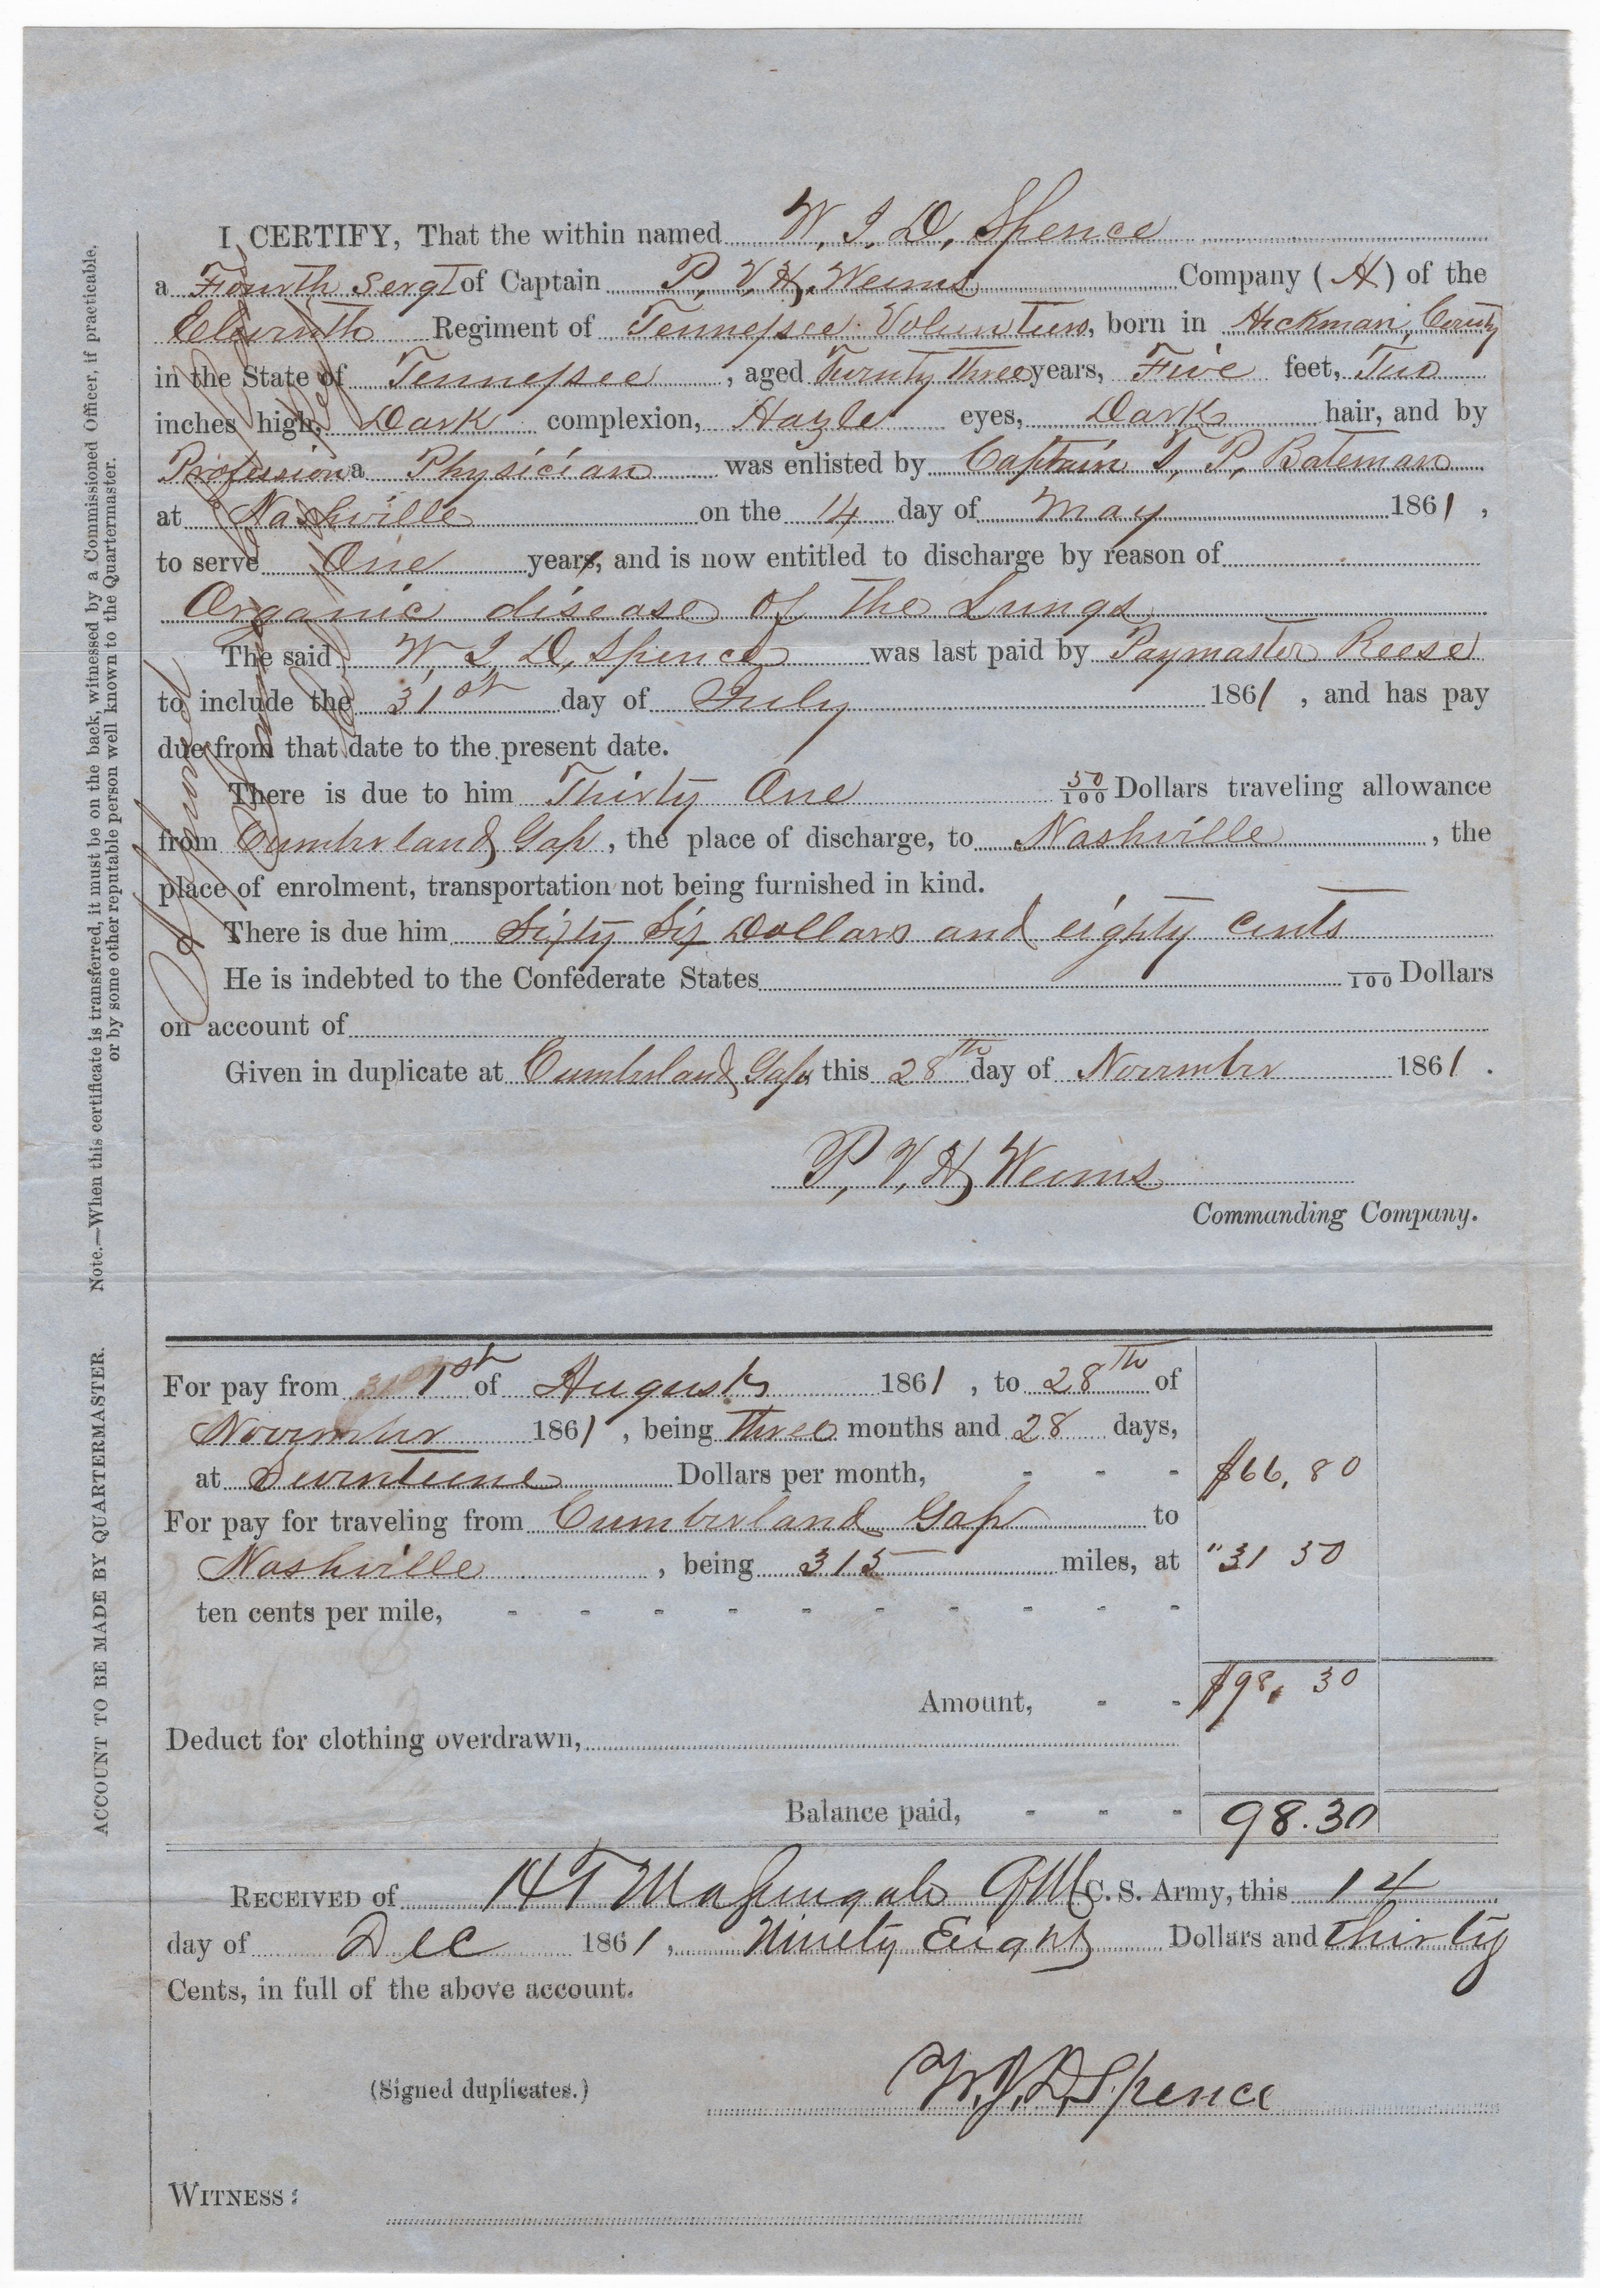 I CERTIFY, That the within named W. J. D. Spence
a Fourth Sergt of Captain P. V. H. Weems Company (H) of the
Eleventh Regiment of Tennessee Volunteers, born in Hickman County
in the State of Tennessee, aged Twenty three years, Five feet, Two
inches high, Dark complexion, Hazle eyes, Dark hair, and by
Profession a Physician was enlisted by Captain T. P. Bateman
at Nashville on the 14 day of May 1861,
to serve One years, and is now entitled to discharge by reason of
Organic disease of the Lungs
The said W. J. D. Spence was last paid by Paymaster Reese
to include the 31st day of July 1861, and has pay
due from that date to the present date.
There is due to him Thirty One 50/100 Dollars traveling allowance
from Cumberland Gap, the place of discharge, to Nashville, the
place of enrolment, transportation not being furnished in kind.
There is due him Sixty Six Dollars and eighty cents
He is indebted to the Confederate States /100 Dollars
on account of
Given in duplicate at Cumberland Gap this 28th day of November 1861.
P. V. H. Weems
Commanding Company.
Note.—When this certificate is transferred, it must be on the back, witnessed by a Commissioned Officer, if practicable,
or by some other reputable person well known to the Quartermaster.
Approved
ACCOUNT TO BE MADE BY QUARTERMASTER.
For pay from 1st of August 1861, to 28th of
November 1861, being Three months and 28 days,
at Seventeene Dollars per month, - - - $66,80
For pay for traveling from Cumberland Gap to
Nashville, being 315 miles, at "31 50
ten cents per mile, - - - - - - - - - -
Amount, - - $98,30
Deduct for clothing overdrawn,
Balance paid, - - - 98.30
RECEIVED of H T Massengale QM C. S. Army, this 14
day of Dec 1861, Ninety Eight Dollars and thirty
Cents, in full of the above account.
(Signed duplicates.) W. J. D. Spence
WITNESS: